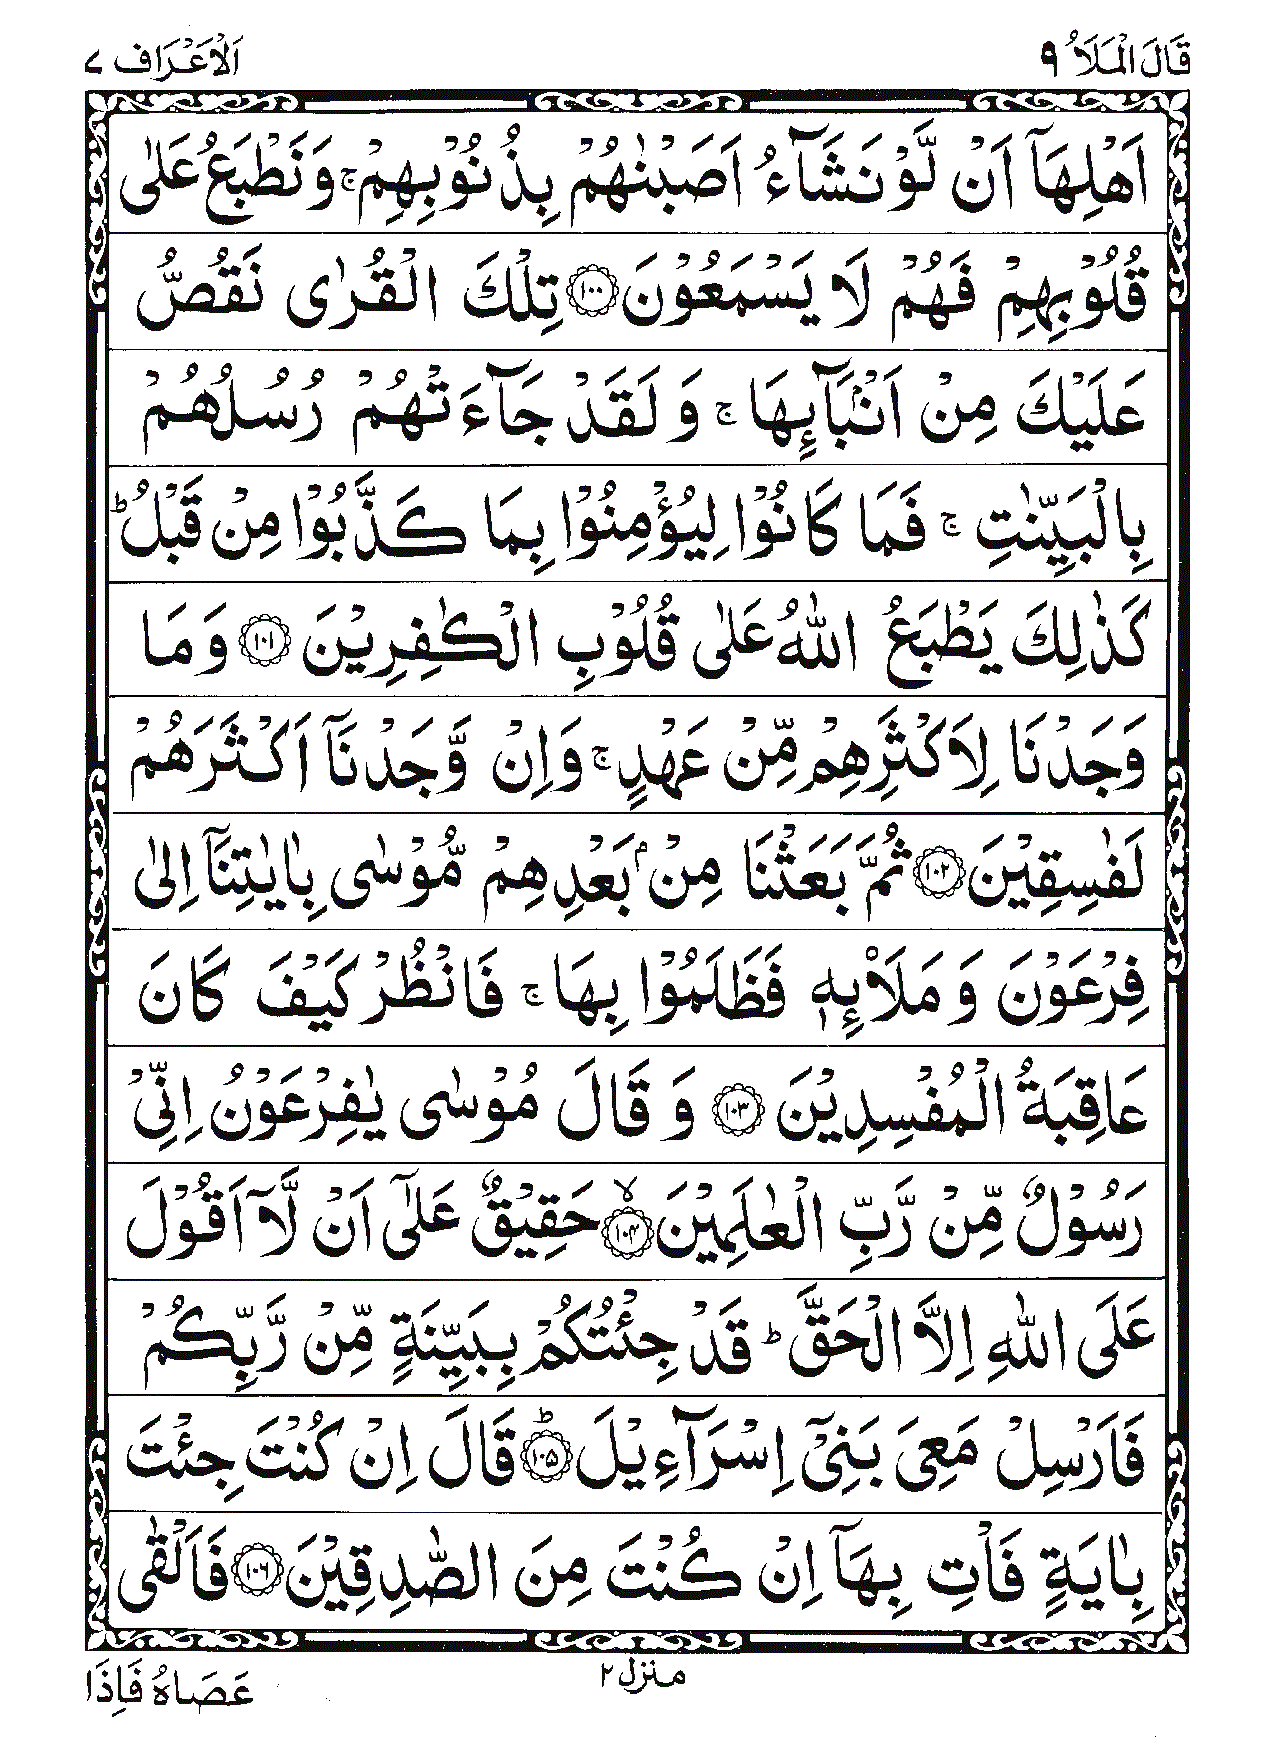 قَالَ الْمَلَاُ ٩
اَلْاَعْرَاف ٧
اَهْلِهَاۤ اَنْ لَّوْ نَشَآءُ اَصَبْنٰهُمْ بِذُنُوْبِهِمْ ۚ وَنَطْبَعُ عَلٰى
قُلُوْبِهِمْ فَهُمْ لَا يَسْمَعُوْنَ ۝١٠٠ تِلْكَ الْقُرٰى نَقُصُّ
عَلَيْكَ مِنْ اَنْۢبَآئِهَا ۚ وَ لَقَدْ جَآءَتْهُمْ رُسُلُهُمْ
بِالْبَيِّنٰتِ ۚ فَمَا كَانُوْا لِيُؤْمِنُوْا بِمَا كَذَّبُوْا مِنْ قَبْلُ ؕ
كَذٰلِكَ يَطْبَعُ اللّٰهُ عَلٰى قُلُوْبِ الْكٰفِرِيْنَ ۝١٠١ وَ مَا
وَجَدْنَا لِاَكْثَرِهِمْ مِّنْ عَهْدٍ ۚ وَاِنْ وَّجَدْنَاۤ اَكْثَرَهُمْ
لَفٰسِقِيْنَ ۝١٠٢ ثُمَّ بَعَثْنَا مِنْۢ بَعْدِهِمْ مُّوْسٰى بِاٰيٰتِنَاۤ اِلٰى
فِرْعَوْنَ وَ مَلَا۟ئِهٖ فَظَلَمُوْا بِهَا ۚ فَانْظُرْ كَيْفَ كَانَ
عَاقِبَةُ الْمُفْسِدِيْنَ ۝١٠٣ وَ قَالَ مُوْسٰى يٰفِرْعَوْنُ اِنِّيْ
رَسُوْلٌ مِّنْ رَّبِّ الْعٰلَمِيْنَ ۙ۝١٠٤ حَقِيْقٌ عَلٰۤى اَنْ لَّاۤ اَقُوْلَ
عَلَى اللّٰهِ اِلَّا الْحَقَّ ؕ قَدْ جِئْتُكُمْ بِبَيِّنَةٍ مِّنْ رَّبِّكُمْ
فَاَرْسِلْ مَعِيَ بَنِيْۤ اِسْرَآءِيْلَ ؕ۝١٠٥ قَالَ اِنْ كُنْتَ جِئْتَ
بِاٰيَةٍ فَاْتِ بِهَاۤ اِنْ كُنْتَ مِنَ الصّٰدِقِيْنَ ۝١٠٦ فَاَلْقٰى
منزل ٢
عَصَاهُ فَاِذَا